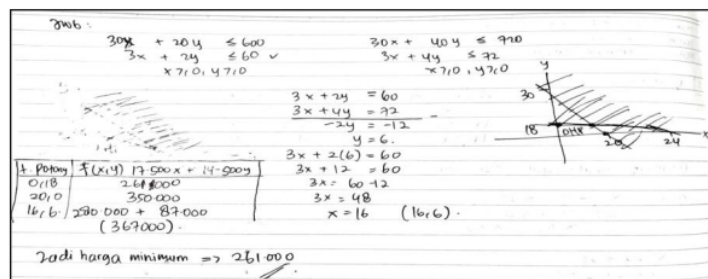 Jwb :
30x + 20y ≤ 600
3x + 2y ≤ 60 ✓
x ≥ 0, y ≥ 0
30x + 40y ≤ 720
3x + 4y ≤ 72
x ≥ 0, y ≥ 0
3x + 2y = 60
3x + 4y = 72 -
-2y = -12
y = 6.
3x + 2(6) = 60
3x + 12 = 60
3x = 60 - 12
3x = 48
x = 16 (16,6).
y
30
18
OHP
20
24
x
t. potong f(x,y) 17.500x + 14.500y
0,18 261.000
20,0 350.000
16,6. 280.000 + 87.000
(367000).
Jadi harga minimum => 261.000